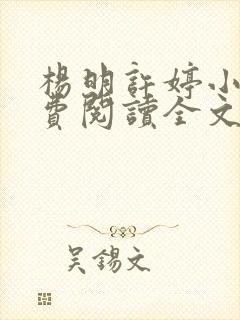 楊明許婷小
費閱讀全文
吳錫文